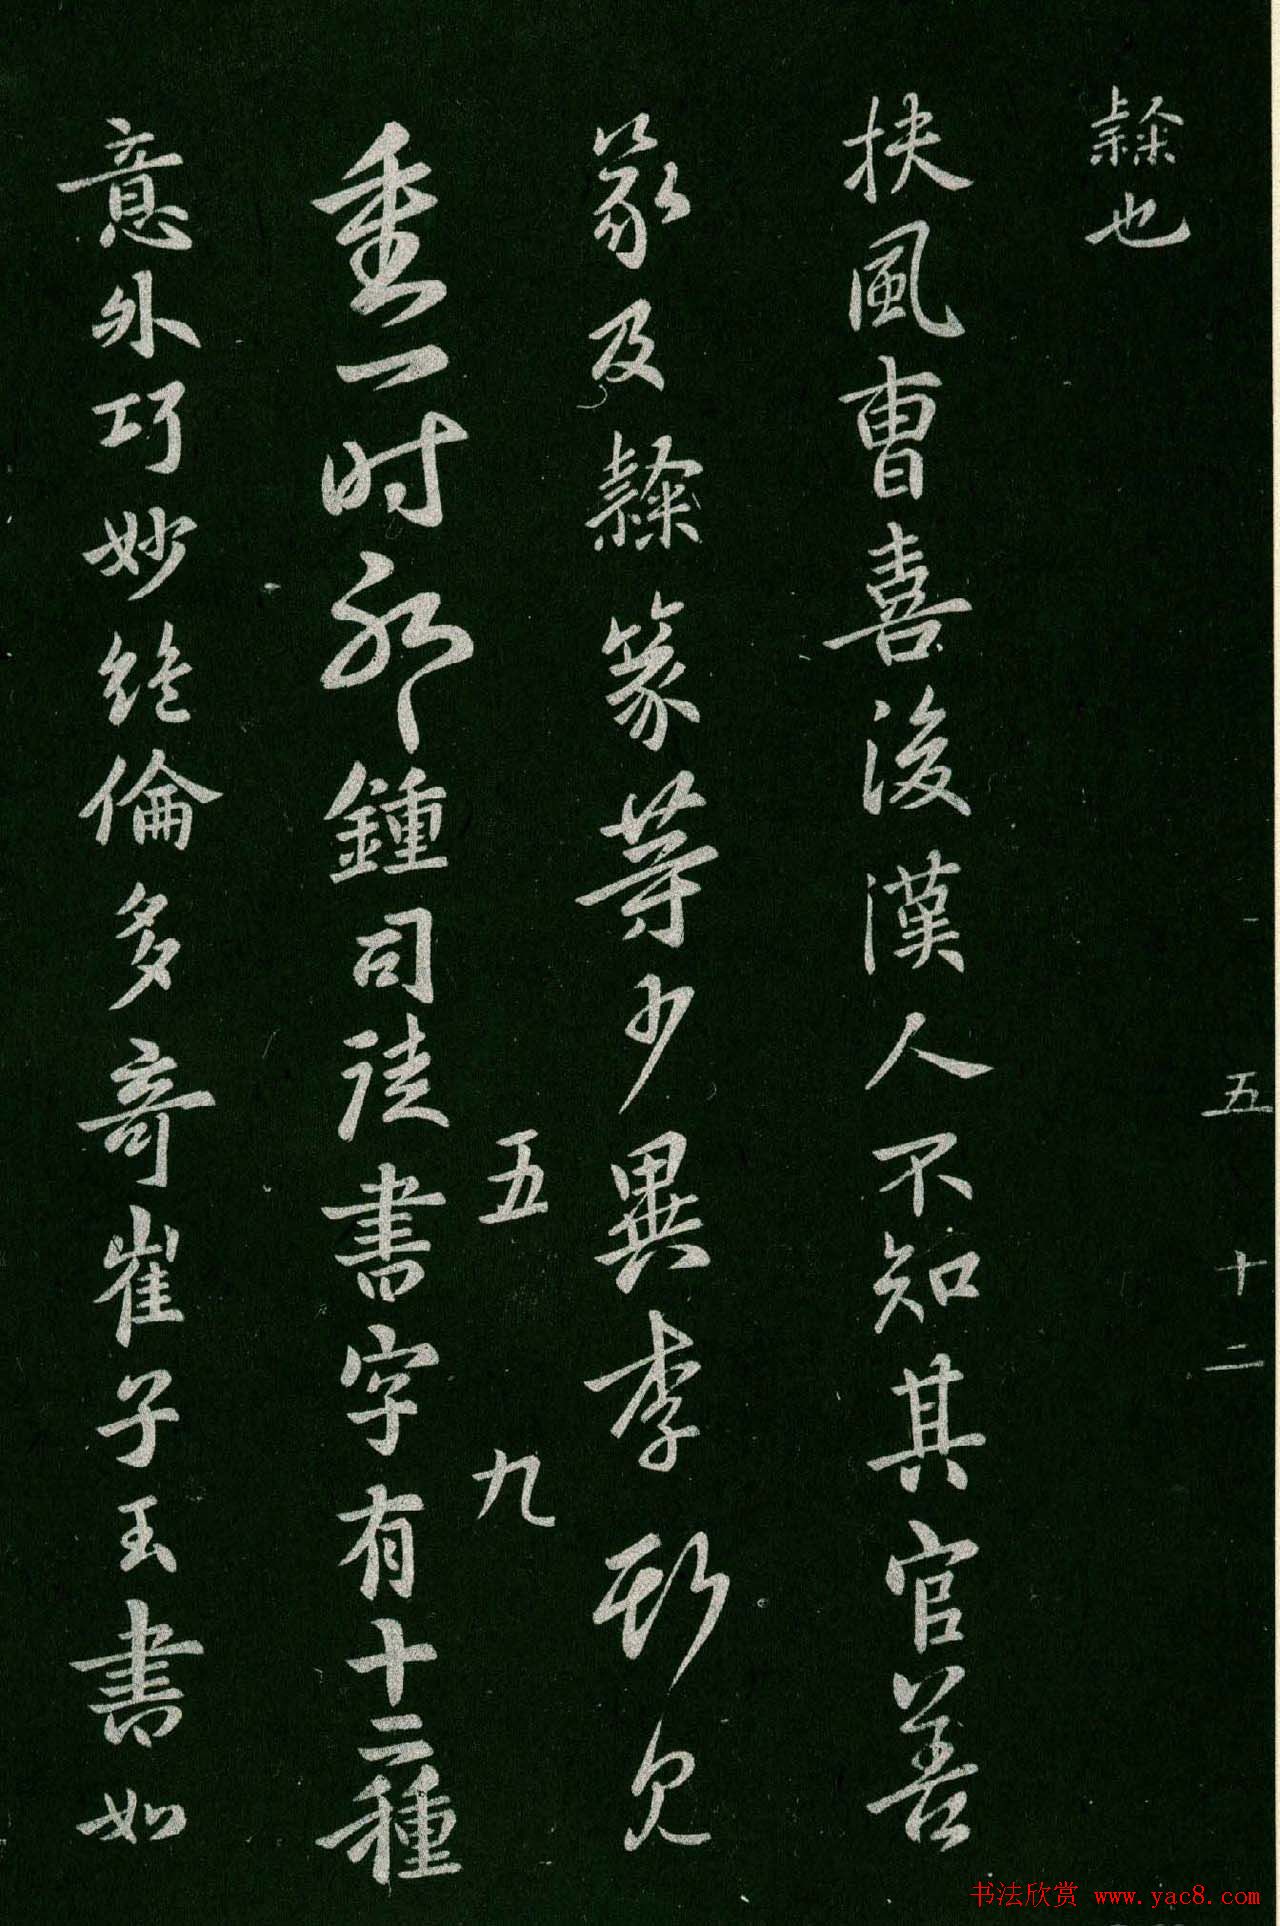 隸也
五 十二
扶風曹喜後漢人不知其官善
篆及隸篆等少異李斯見
五 九
重一時鍾司徒書字有十二種
意外巧妙絶倫多奇崔子玉書如
书法欣赏 www.yac8.com